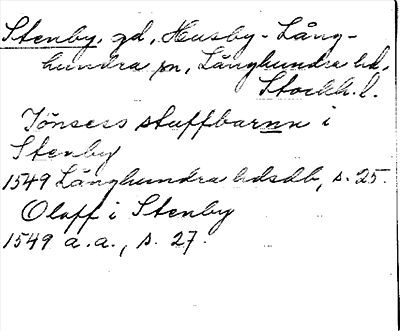 Stenby, gd, Husby-Lång-
hundra sn, Långhundra hd,
Stockh. l.
Jönsess stuffbarnn i
Stenby
1549 Långhundra hdsdb, s. 25.
Oloff i Stenby
1549 a.a., s. 27.